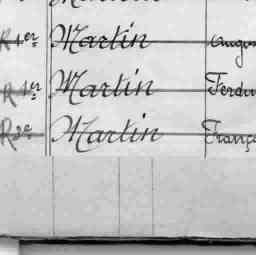 R 1er Martin Augus
R 1er Martin Ferdin
R 2e Martin Franço